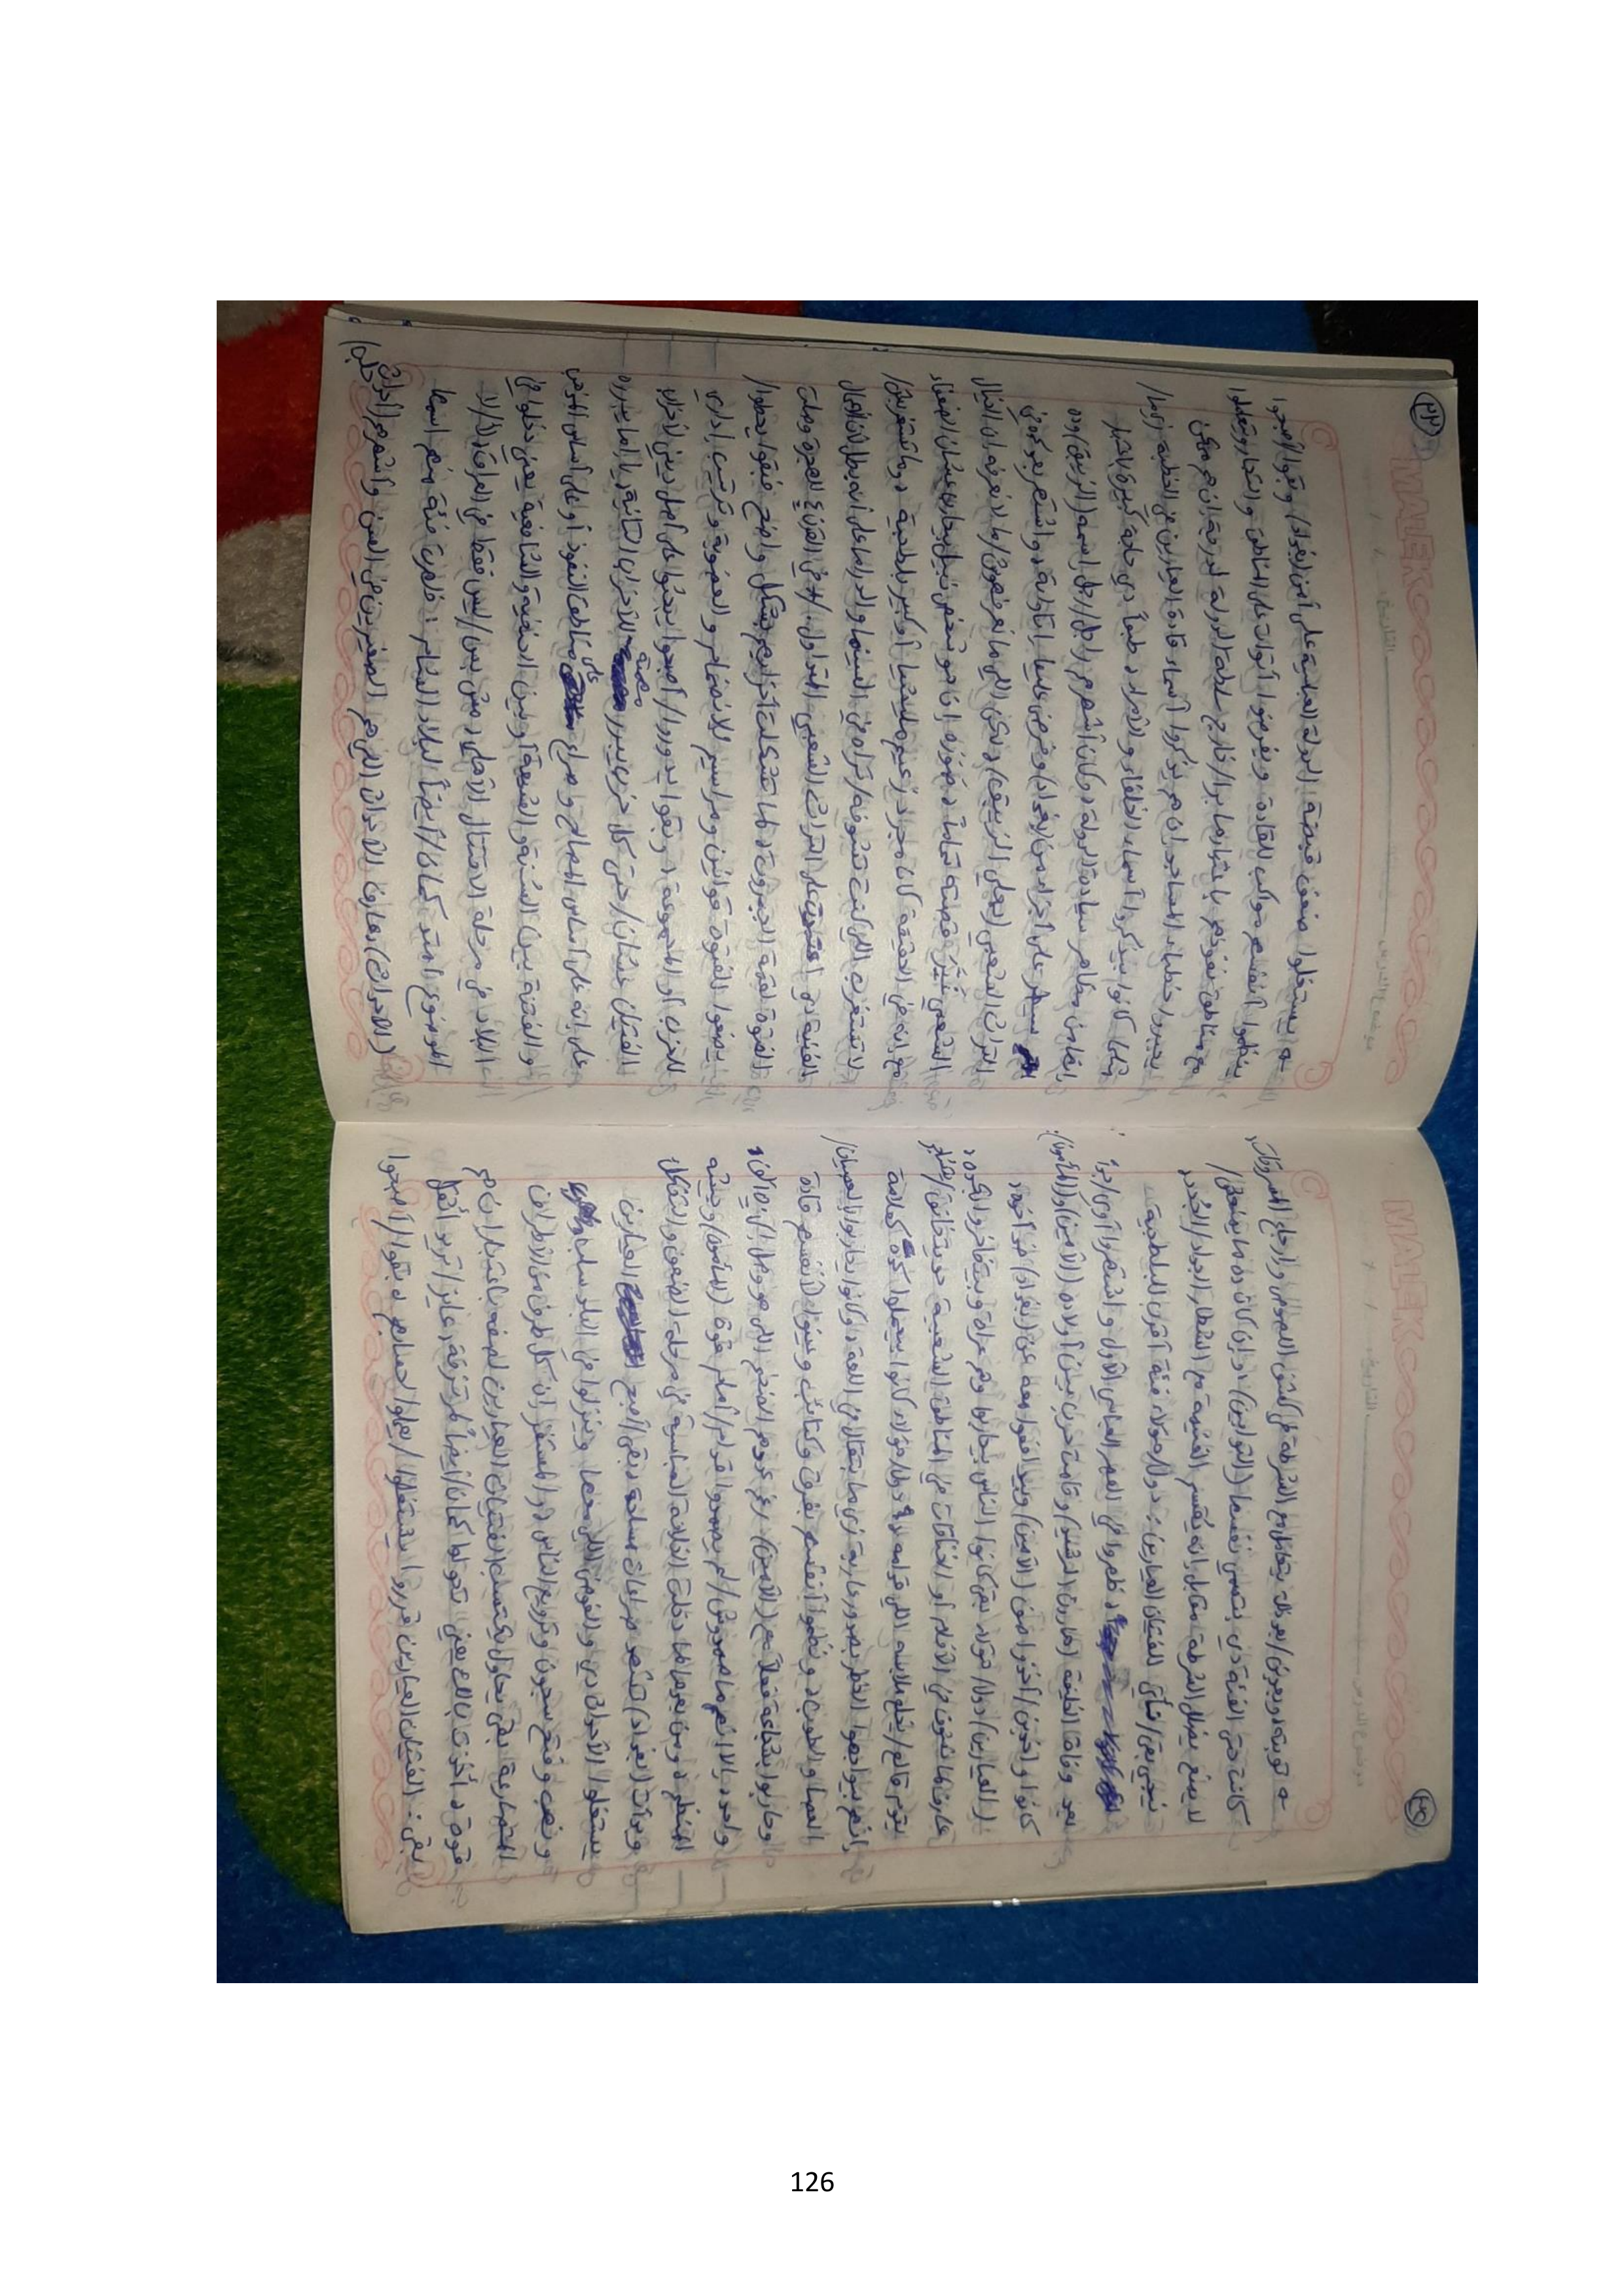 ٣٠
MALEK
التاريخ
موضوع الدرس
توبته ويعيش / بعد ذلك يتعامل مع الشرطة في كشف اللصوص وإرجاع المسروقات
كانت حتى الفئة دي بتسمي نفسها (التوابين) / وإن كان ده ما يمنعش /
لا يمنع بعض الشرطة مقابل إنه يقتسم الغنيمة مع الشطار الجداد /
نيجي بقى / للفتيان العيارين : دول هؤلاء فئة أقرب للبلطجية
ظهروا في العصر العباسي الأول واشتهروا أوي / جداً
بعد وفاة الخليفة (هارون الرشيد) وقامت حرب بين أولاده (الأمين) و(المأمون).
كانوا واخدين / أخذوا صف (الأمين) وبيدافعوا معه عن (بغداد) ضد أخوه
(العيارين) دول / هؤلاء بقى كانوا الناس يحاربوا وهم عراة وبيتفاخروا بكده
عارف لما تشوف في الأفلام أو الخناقات في المناطق الشعبية حد بيتخانق /
يقوم قالع / يخلع ملابسه اللي قدامه دول / هؤلاء كانوا بيعملوا كده كعلامة
إنهم بيواجهوا الخطر بصدور عارية زي ما بيتقال في اللغة وكانوا يحاربوا بالعصيان /
العصا والطوب ونظموا أنفسهم بفرق وكتائب وعينوا لأنفسهم قادة
وحاربوا بشجاعة فعلاً مع (الأمين) رغم عددهم الضخم اللي هو وصل
واحد إلا إنهم ما صمدوش / لم يصمدوا قدام / أمام قوة (المأمون) وجيشه
المنظم ومن بعدها لما دخلت الخلافة العباسية في مرحلة الضعف والتفكك
وبدأت (بغداد) تشهد صراعات مسلحة بقى / أصبح العيارين
يستغلوا الأحداث دي والفوضى اللي معها وينزلوا في البلد سلب و
ونهب وفتح سجون وترويع الناس والمستفز إن كل طرف من الأطراف
المتصارعة بقى يحاول يكتسب الفتيان العيارين لصفه باعتبار إن هم
قوة أخذت بالك يعني تحولوا كمان / أيضاً لمرتزقة عايز / تريد أثقل
بقى : الفتيان العيارين قرروا يستغلوا / يعملوا لحسابهم بقوا / أصبحوا /
٣١
MALEK
التاريخ
موضوع الدرس
يستغلوا ضعف قبضة الدولة العباسية على أمن (بغداد) وبقوا / أصبحوا
ينظموا أنفسهم مواكب للقادة ويفرضوا أتوات على المناطق والتجار وتعاملوا
مع مناطق نفوذهم باعتبارها برا / خارج سلطة الدولة لدرجة إن هم ممكن
يجبروا خطباء المساجد إن هم يذكروا أسماء قادة العيارين في الخطبة زيما /
مثلما كانوا بيذكروا أسماء الخلفاء والأمراء طبعاً دي حاجة كبيرة
إنها من مظاهر سيادة الدولة وكان أشهرهم راجل / رجل اسمه (الزيبق) وده
سيطر على أجزاء من (بغداد) وفرض عليها إتاوة واشتهر بعد كده في
التراث الشعبي (بعلي الزيبق) ولكن اللي ما نعرفهوش / ما لا نعرفه إن الخيال
الشعبي نشر قصته تماماً وصوره إن هو شخص نبيل بيحارب عشان الضعفاء
مع إنه في الحقيقة كان مجرد زعيم مليشيا أو كبير بلطجية وما تستغربش /
لا تستغرب اللي كنت تشوفه / تراه في السينما والدراما على أنه بطل لأن الأعمال
الفنية دي اعتمدت على التراث الشعبي المتداول. / في القرن ٤ للهجرة وصلت
الفتوة لقمة الجبروت لما تشكلت أحزابهم بشكل واضح فبقوا يحطوا /
يضعوا للفتوة قوانين ومراسيم للانضمام والعضوية وترتيب إداري
للحزب أو المجموعة وبقوا يدوروا / أصبحوا يبحثوا على أصل ديني لأحزاب
الفتيان عشان / حتى كل حزب يبرر معيته للأحزاب الثانية يا إما يبرره
على إنه على أساس المصالح وصراع على مناطق النفوذ أو على أساس المذهبي
والفتنة بين السُنة والشيعة أو بين الحنفية والشافعية يعني دخلوا في
البلاد في مرحلة الاقتتال الأهلي مش بس / ليس فقط في العراق لأ / لا
الموضوع امتد كمان / أيضاً لبلاد الشام : فظهرت فئة منهم اسمها
(الأحداث) بمعنى الأحداث اللي هم الصغيرين في السن وأشهرهم / أحداث حلب /